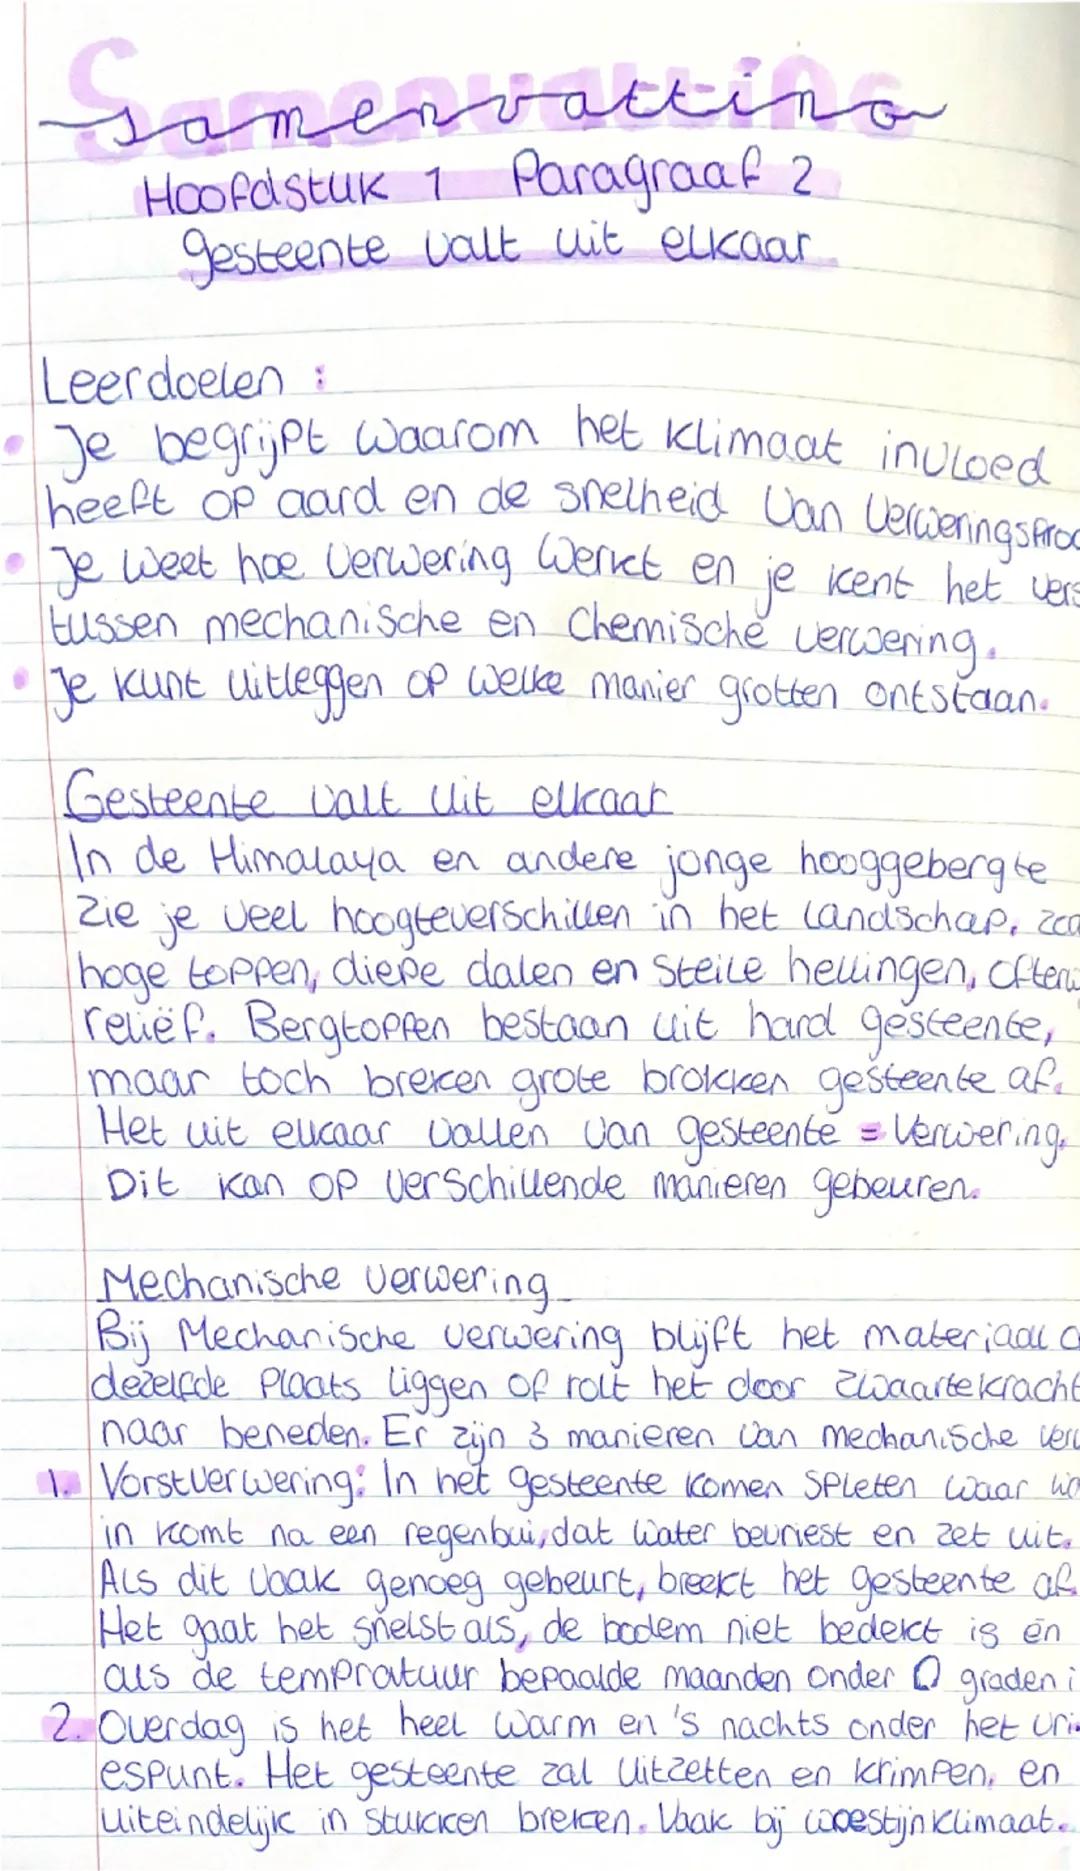 Samenvatting
Samenvatting
Hoofdstuk 1 Paragraaf 2
gesteente valt uit elkaar
Leerdoelen :
Je begrijpt waarom het klimaat invloed
heeft op aard en de snelheid van verweringsproc
Je weet hoe verwering werkt en je kent het vers
tussen mechanische en chemische verwering.
Je kunt uitleggen op welke manier grotten ontstaan.
Gesteente valt uit elkaar
In de Himalaya en andere jonge hooggebergte
zie je veel hoogteverschillen in het landschap, zoa
hoge toppen, diepe dalen en steile hellingen, oftew
reliëf. Bergtoppen bestaan uit hard gesteente,
maar toch breken grote brokken gesteente af.
Het uit elkaar vallen van gesteente = verwering.
Dit kan op verschillende manieren gebeuren.
Mechanische verwering
Bij Mechanische verwering blijft het materiaal o
dezelfde plaats liggen of rolt het door zwaartekracht
naar beneden. Er zijn 3 manieren van mechanische verw
1. Vorstverwering: In het gesteente komen spleten waar wa
in komt na een regenbui, dat water bevriest en zet uit.
Als dit vaak genoeg gebeurt, breekt het gesteente af.
Het gaat het snelst als, de bodem niet bedekt is én
als de tempratuur bepaalde maanden onder 0 graden i
2. Overdag is het heel warm en 's nachts onder het vri
espunt. Het gesteente zal uitzetten en krimpen, en
uiteindelijk in stukken breken. Vaak bij woestijnklimaat.